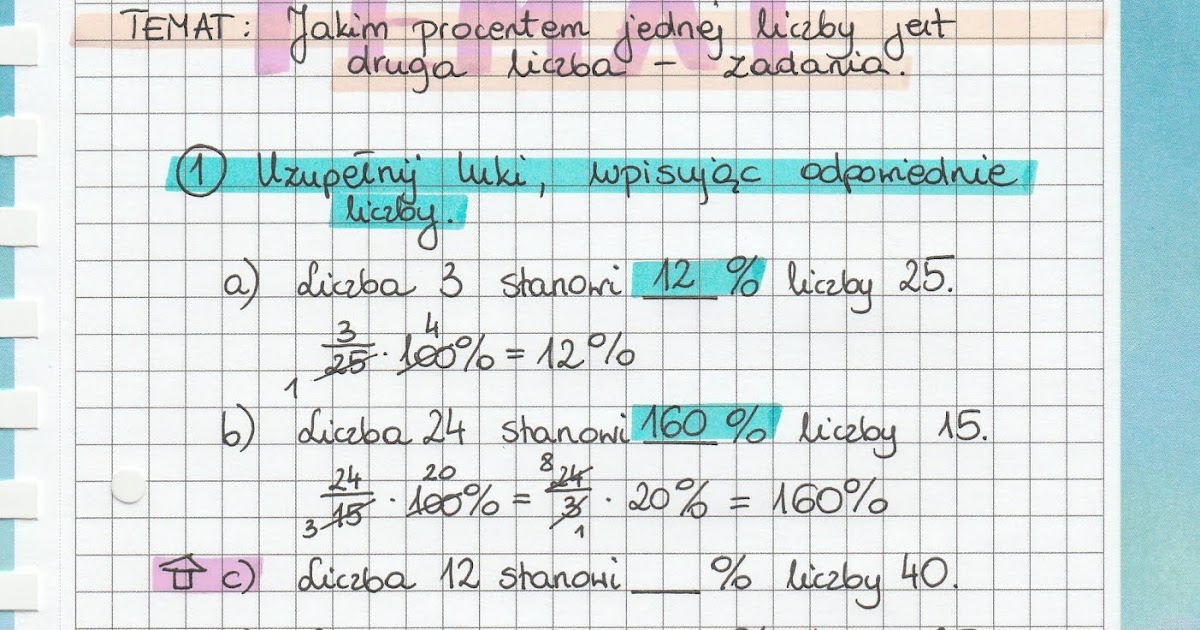 TEMAT: Jakim procentem jednej liczby jest
druga liczba - zadania.
1 Uzupełnij luki, wpisując odpowiednie
liczby.
a) Liczba 3 stanowi 12 % liczby 25.
3/25 · 100% = 12% 4 1
b) Liczba 24 stanowi 160 % liczby 15.
24/15 · 100% = 24/3 · 20% = 160% 20 3 8 1
c) Liczba 12 stanowi ___ % liczby 40.